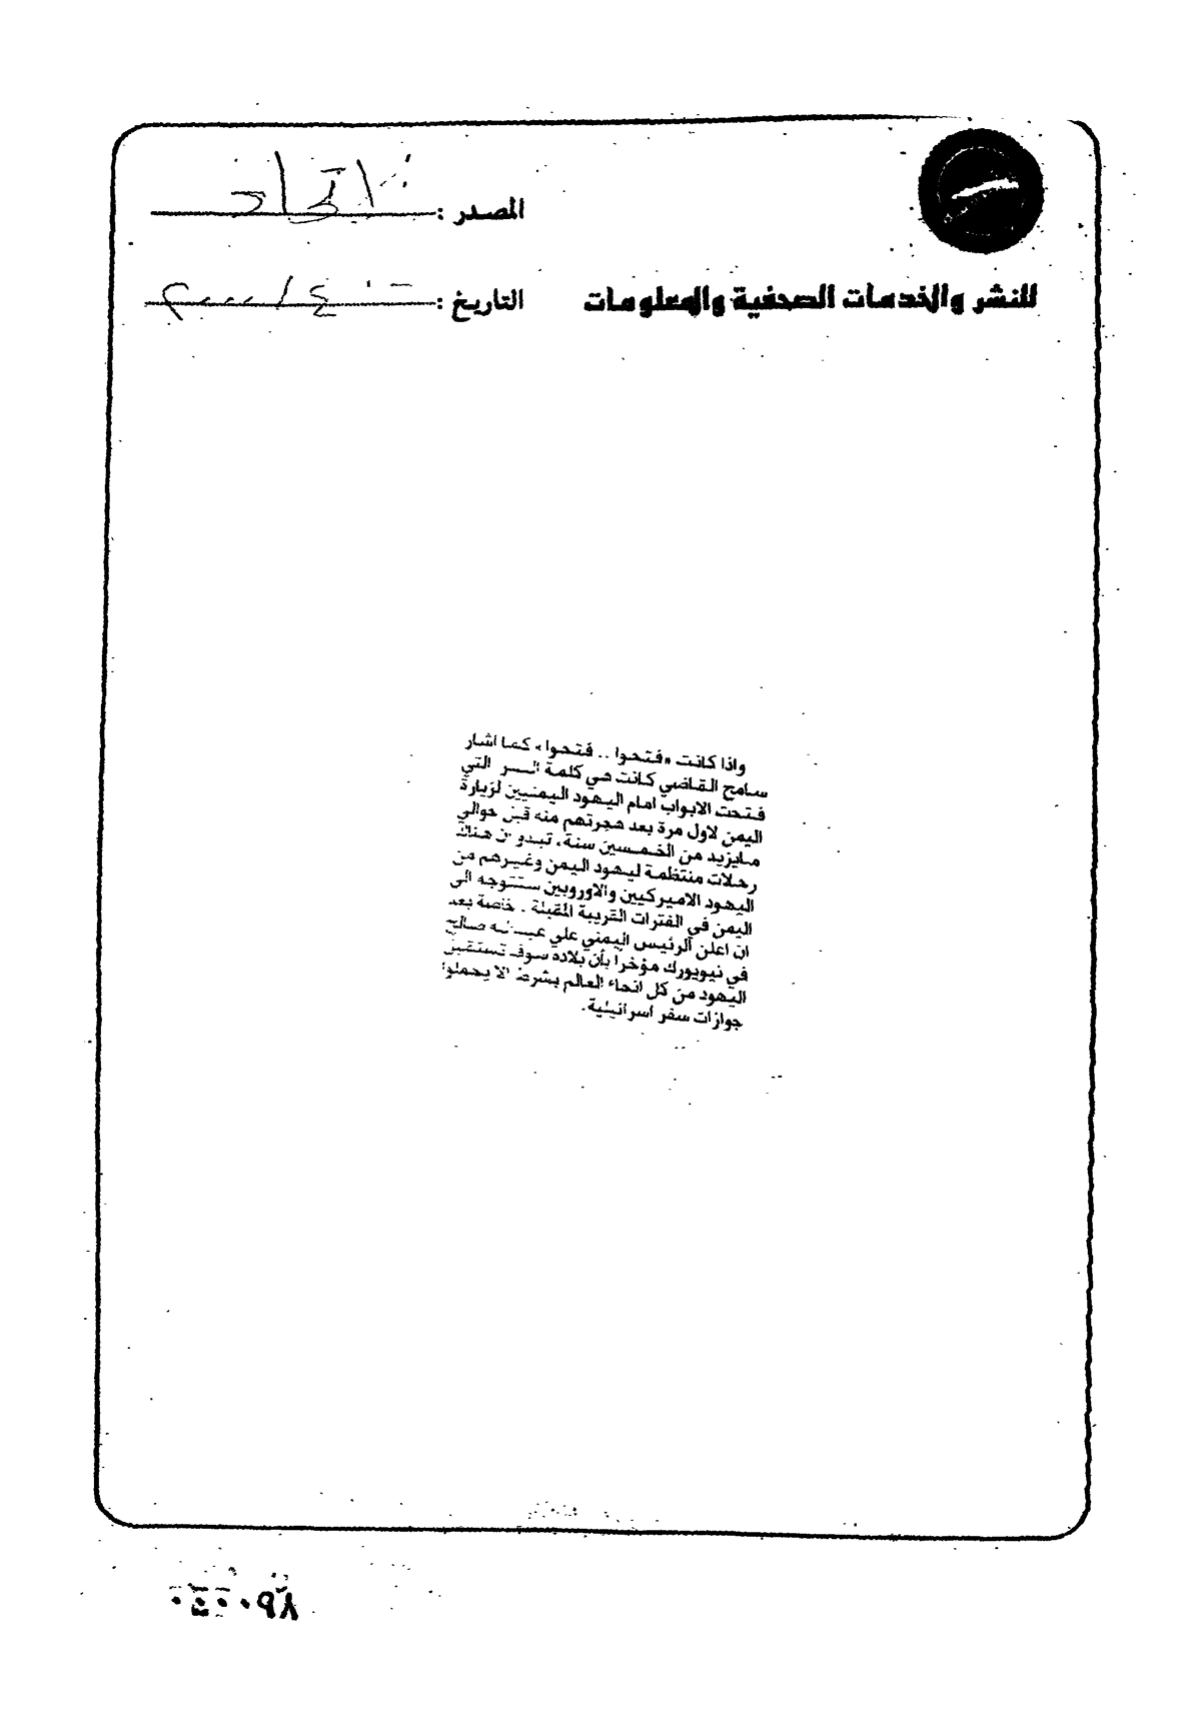 المصدر : الاتحاد
التاريخ :
للنشر والخدمات الصحفية والمعلومات
واذا كانت «فتحوا .. فتحوا» كما اشار
سامح القاضي كانت هي كلمة السر التي
فتحت الابواب امام اليهود اليمنيين لزيارة
اليمن لاول مرة بعد هجرتهم منه قبل حوالي
مايزيد من الخمسين سنة، تبدو ان هناك
رحلات منتظمة ليهود اليمن وغيرهم من
اليهود الاميركيين والاوروبيين ستتوجه الى
اليمن في الفترات القريبة المقبلة . خاصة بعد
ان اعلن الرئيس اليمني علي عبدالله صالح
في نيويورك مؤخرا بأن بلاده سوف تستقبل
اليهود من كل انحاء العالم بشرط الا يحملوا
جوازات سفر اسرائيلية.